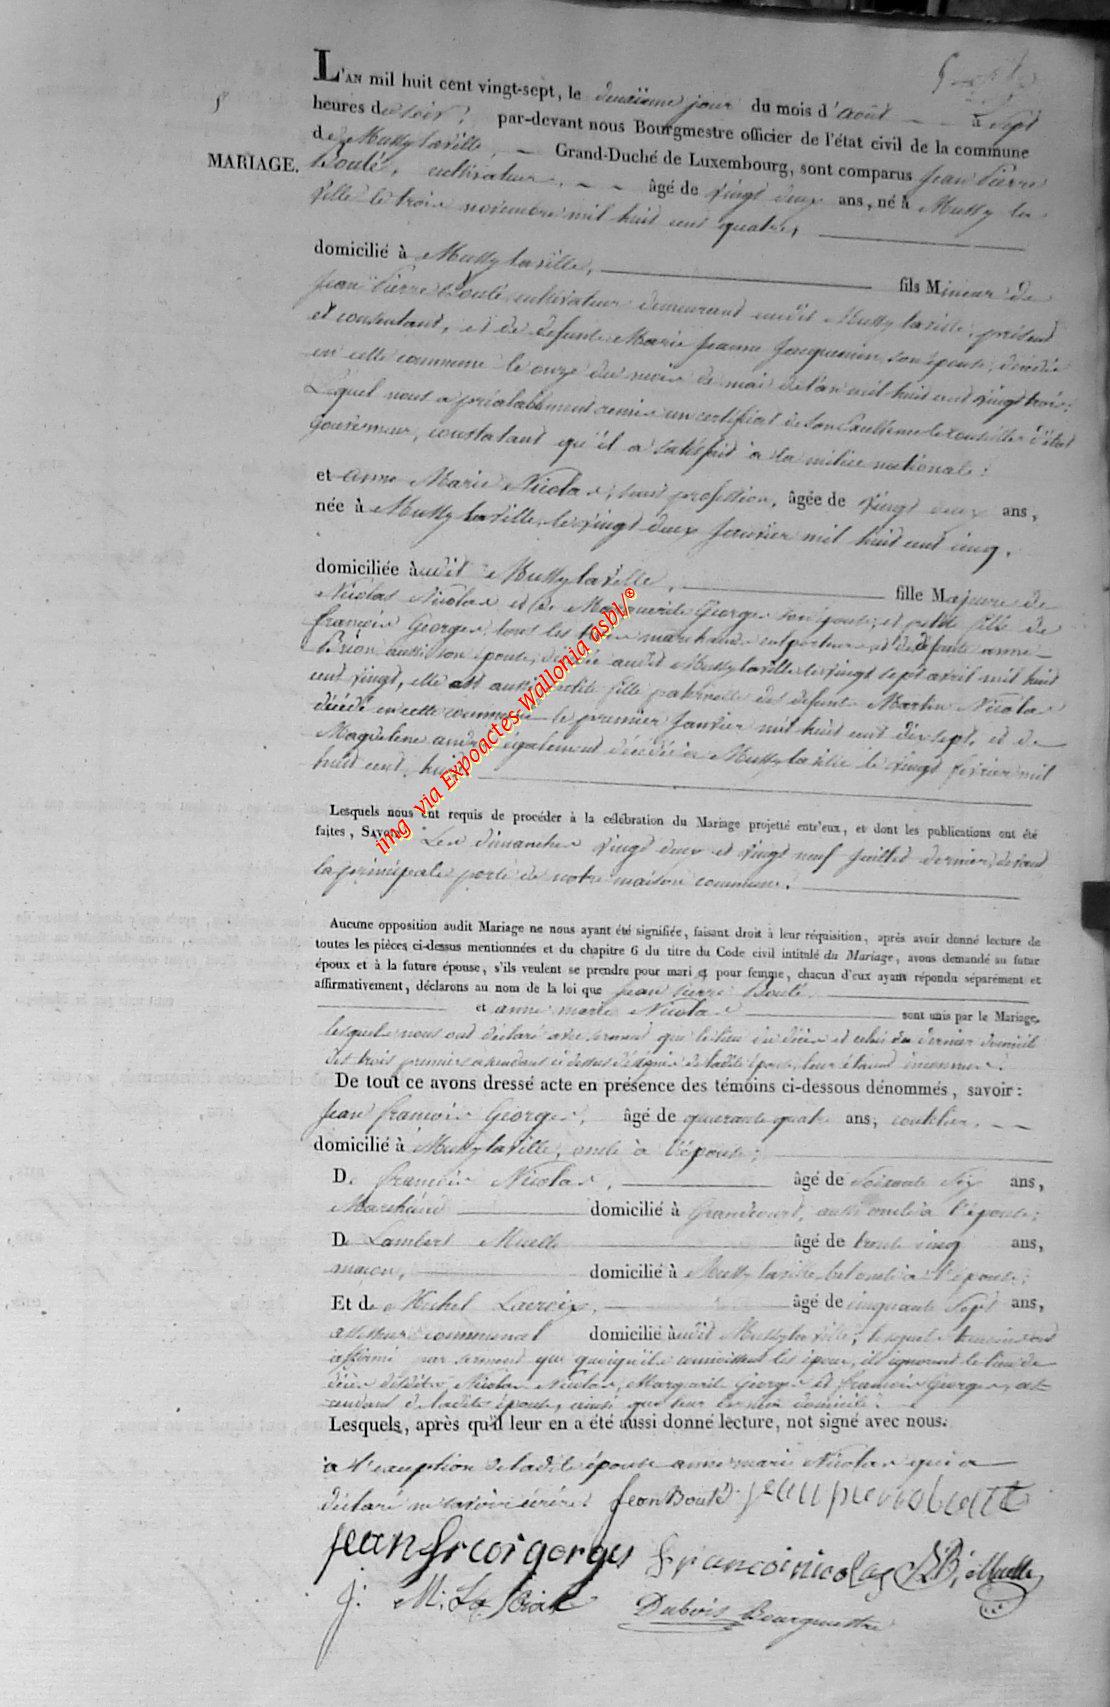 L'AN mil huit cent vingt-sept, le deuxième jour du mois d'août à Sept
heures du soir, par-devant nous Bourgmestre officier de l'état civil de la commune
de Mussy laville, Grand-Duché de Luxembourg, sont comparus Jean Pierre
MARIAGE.
Boulé, cultivateur, âgé de vingt deux ans, né à Mussy la
ville le trois novembre mil huit cent quatre,
domicilié à Mussy laville, fils Mineur de
Jean Pierre Boulé cultivateur demeurant audit Mussy laville, présent
et consentant, et de defunte Marie Jeanne Jacquemin son épouse, décédée
en cette commune le onze du mois de mai de l'an mil huit cent vingt trois;
Lequel nous a préalablement remis un certificat de Son Excellence le Conseiller d'état
Gouverneur, constatant qu'il a satisfait à la milice nationale;
et anne Marie Nicolas, sans profession, âgée de vingt deux ans,
née à Mussy laville, le vingt deux Janvier mil huit cent cinq.
domiciliée audit Mussy laville, fille Majeure de
Nicolas Nicolas et de Marguerite Georges son épouse, et petite fille de
françois Georges, tous les trois marchands colporteurs et de defunte anne
aussi son épouse, décédée audit Mussy laville le vingt sept avril mil huit
cent vingt, elle est aussi petite fille paternelle des defunts Martin Nicolas
décédé en cette commune le premier Janvier mil huit cent dix sept, et de
Magdelene andré également décédée à Mussy laville le vingt février mil
huit cent huit
Lesquels nous ont requis de procéder à la célébration du Mariage projetté entr'eux, et dont les publications ont été
faites, SAVOIR: Les dimanches vingt deux et vingt neuf Juillet dernier, devant
la principale porte de notre maison commune.
Aucune opposition audit Mariage ne nous ayant été signifiée, faisant droit à leur réquisition, après avoir donné lecture de
toutes les pièces ci-dessus mentionnées et du chapitre 6 du titre du Code civil intitulé du Mariage, avons demandé au futur
époux et à la future épouse, s'ils veulent se prendre pour mari et pour femme, chacun d'eux ayant répondu séparément et
affirmativement, déclarons au nom de la loi que Jean Pierre Boulé
et anne marie Nicolas sont unis par le Mariage,
lesquels nous ont déclaré avec serment que le lieu du décès et celui du dernier domicile
des trois premiers ascendants ci dessus désignés de ladite épouse, leur étaient inconnus.
De tout ce avons dressé acte en présence des témoins ci-dessous dénommés, savoir:
Jean françois Georges, âgé de quarante quatre ans, coutelier,
domicilié à Mussy laville, oncle à l'épouse;
De françois Nicolas, âgé de Soixante Six ans,
Marchand domicilié à Grandcourt, aussi oncle à l'épouse;
De Lambert Muelle âgé de trente cinq ans,
maçon, domicilié à Mussy laville, bel oncle à l'épouse;
Et de Michel Lacroix, âgé de cinquante Sept ans,
assesseur communal domicilié audit Mussy laville, lesquels témoins ont
affirmé par serment que quoiqu'ils connoissent les époux, ils ignorent le lieu de
décès desdits Nicolas Nicolas, Marguerite Georges et françois Georges, as-
cendants de ladite épouse, ainsi que leur dernier domicile.
Lesquels, après qu'il leur en a été aussi donné lecture, ont signé avec nous.
à l'exception de ladite épouse anne marie Nicolas qui a
déclaré ne savoir écrire. Jean Boulé jean pierre boulé
jean frcoi gorges francoi nicolas Muelle
J. M. La Croix Dubois Bourgmestre
img via Expoactes-Wallonia asbl/®